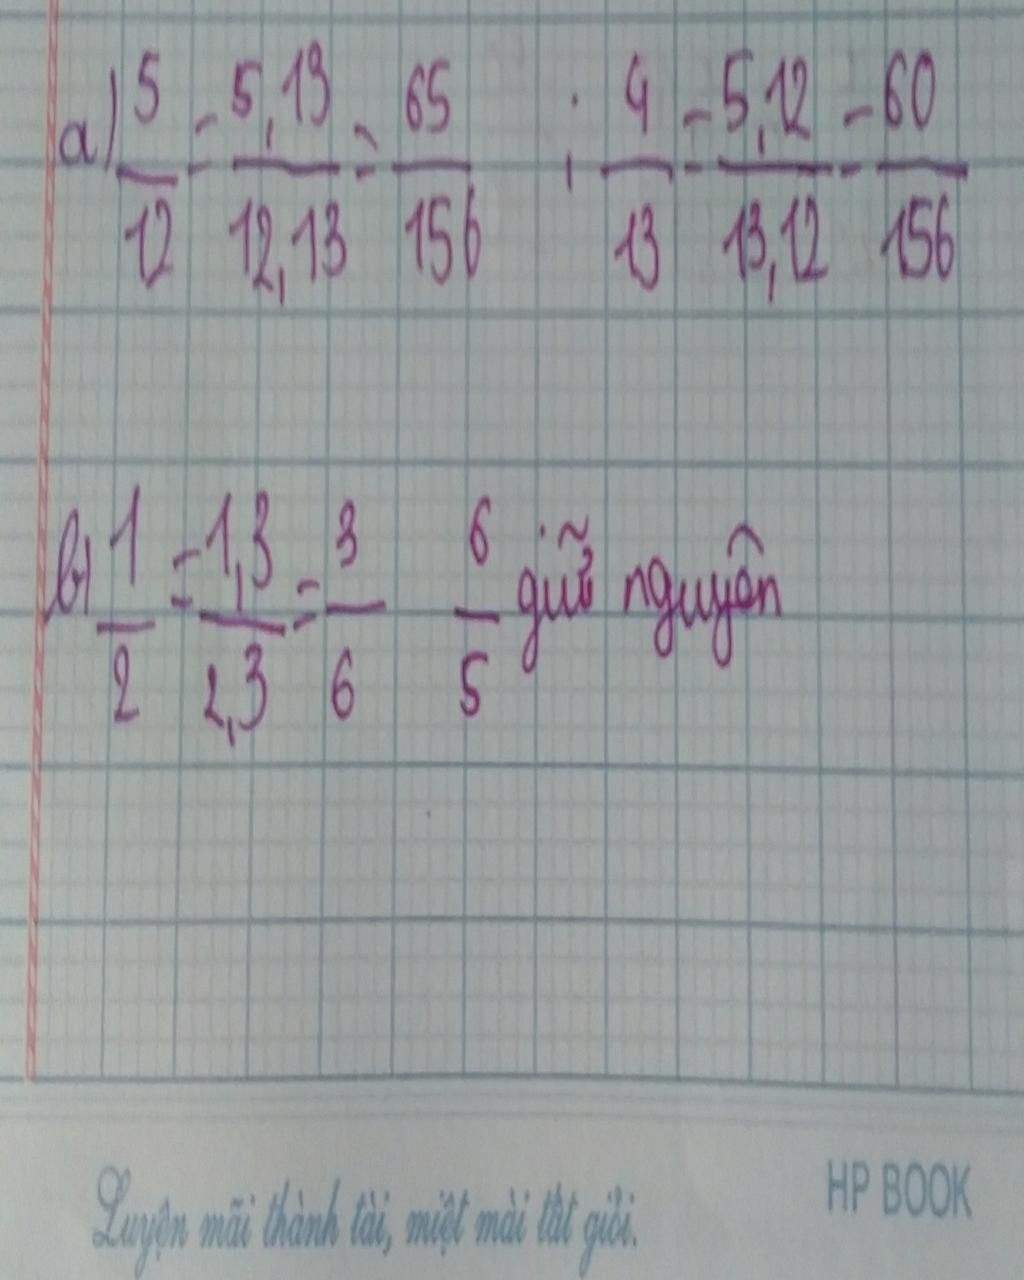 a) 5/12 = 5,13/12,13 = 65/156 ; 4/13 = 5,12/13,12 = 60/156
b) 1/2 = 1,3/2,3 = 3/6 6/5 giữ nguyên
Luyện mãi thành tài, miệt mài tất giỏi.
HP BOOK